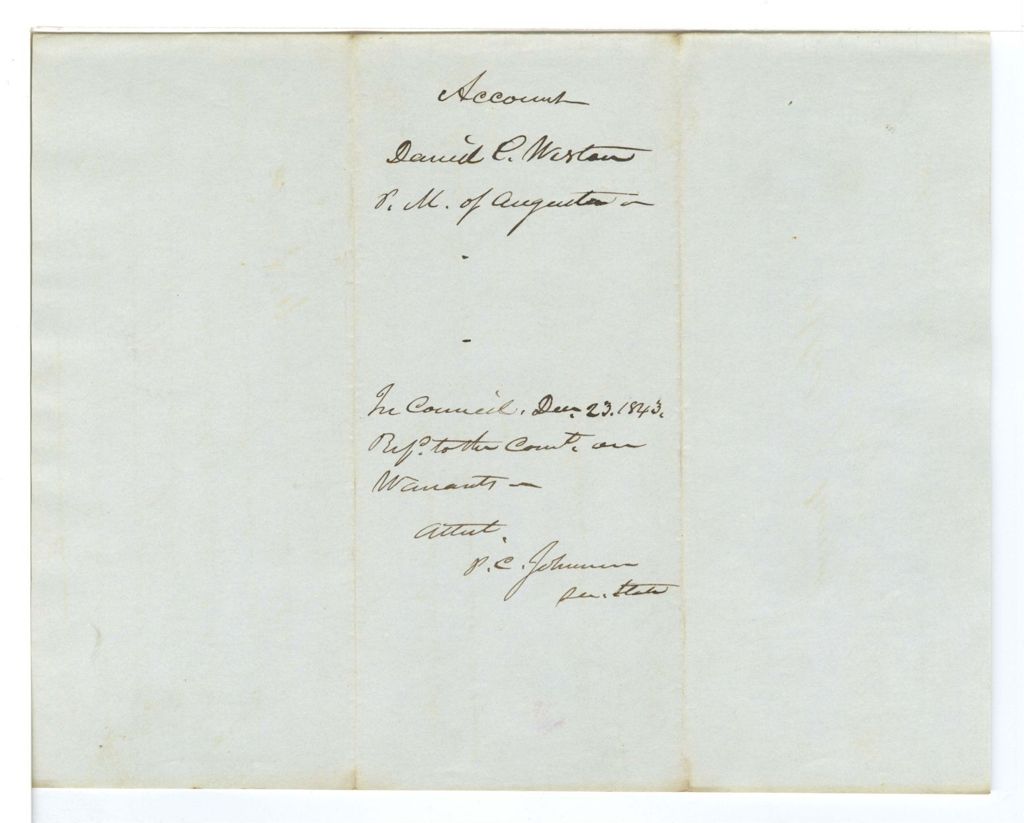 Account
Daniel C. Weston
P. M. of Augusta
In Council, Dec. 23. 1843.
Refd. to the Comte. on
Warrants
Attest,
P. C. Johnson
Sec. State